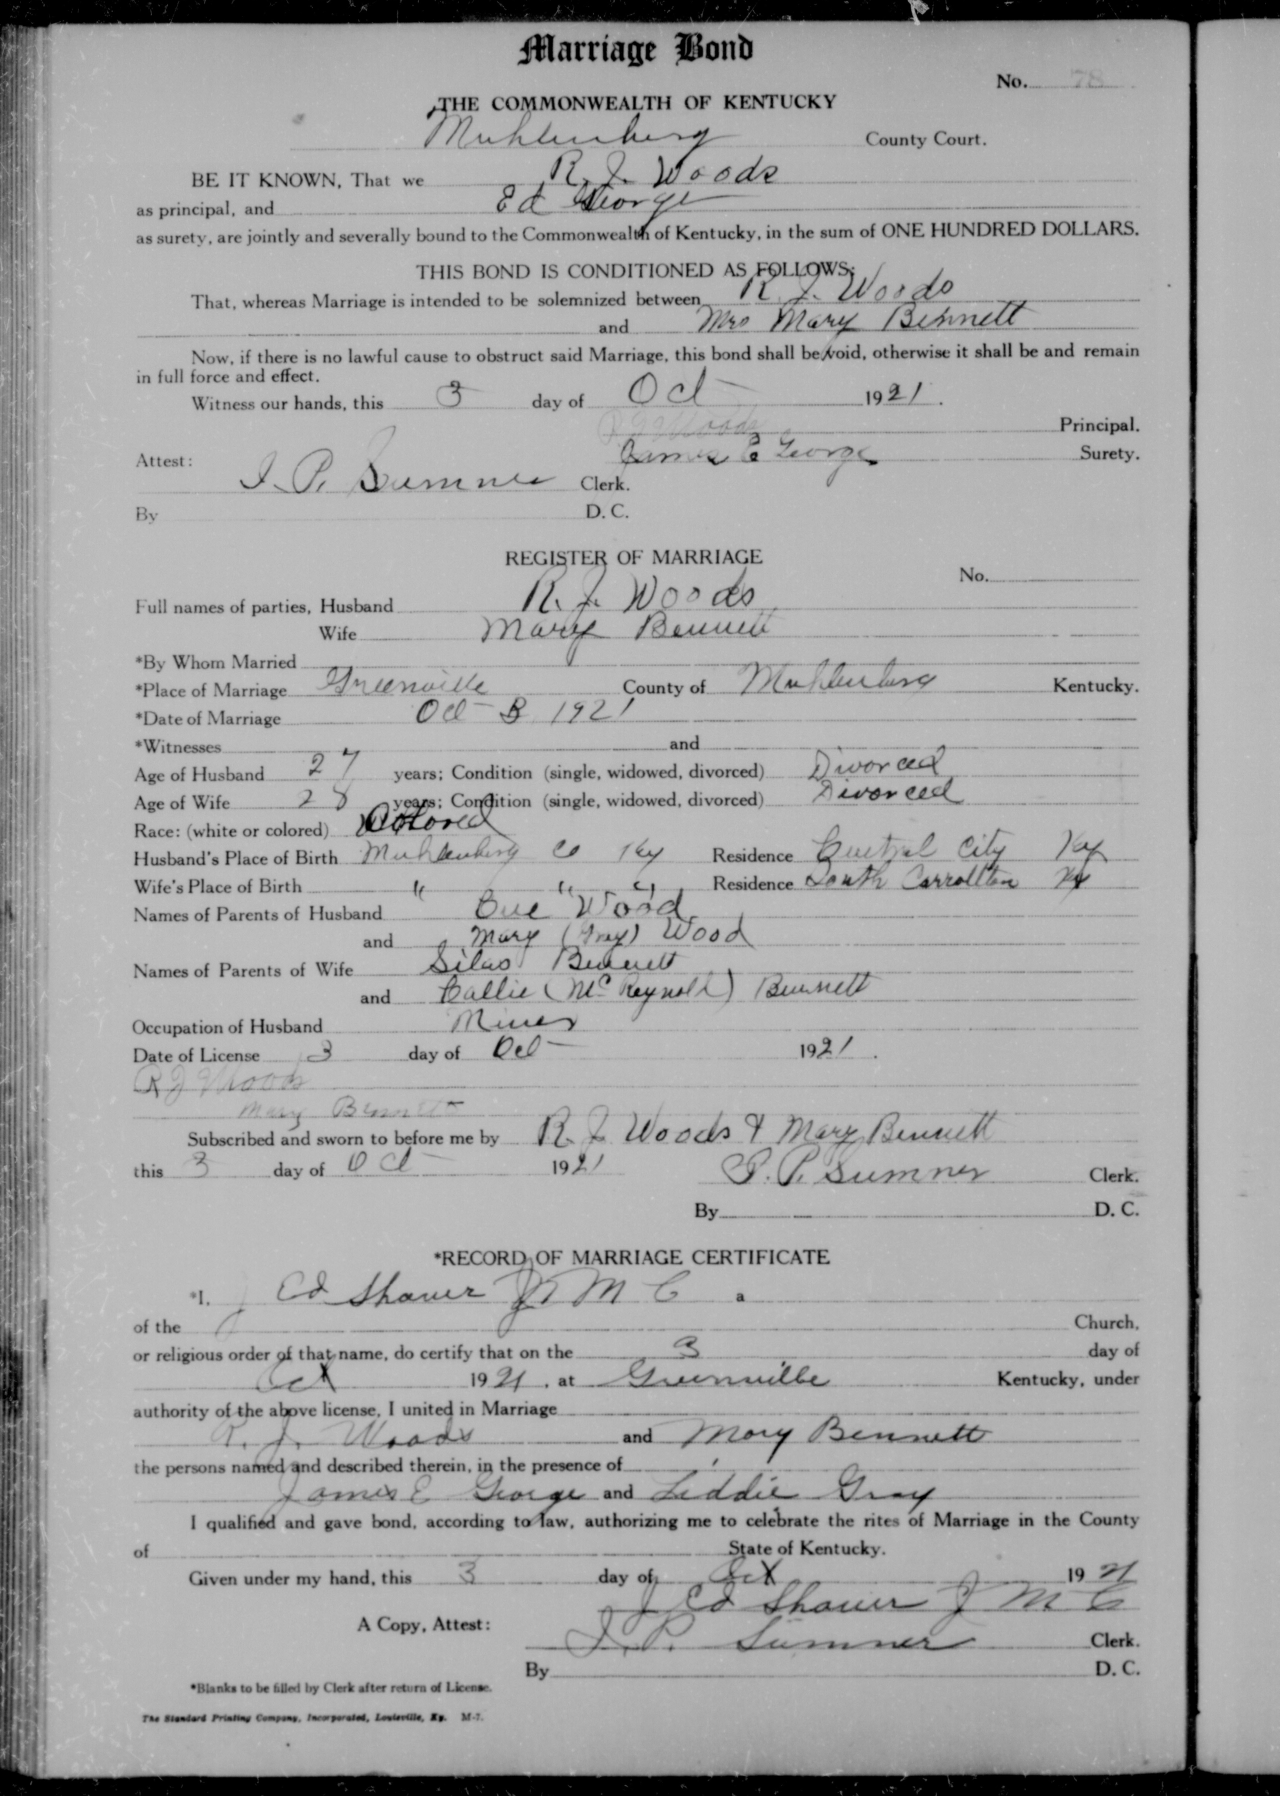 Marriage Bond
No. 78
THE COMMONWEALTH OF KENTUCKY
Muhlenberg County Court.
BE IT KNOWN, That we R. J. Woods
as principal, and Ed George
as surety, are jointly and severally bound to the Commonwealth of Kentucky, in the sum of ONE HUNDRED DOLLARS.
THIS BOND IS CONDITIONED AS FOLLOWS:
That, whereas Marriage is intended to be solemnized between R. J. Woods
and Mrs Mary Bennett
Now, if there is no lawful cause to obstruct said Marriage, this bond shall be void, otherwise it shall be and remain
in full force and effect.
Witness our hands, this 3 day of Oct 1921.
R J Woods Principal.
Attest: James E George Surety.
J. P. Sumner Clerk.
By D. C.
REGISTER OF MARRIAGE
No.
Full names of parties, Husband R. J. Woods
Wife Mary Bennett
*By Whom Married
*Place of Marriage Greenville County of Muhlenberg Kentucky.
*Date of Marriage Oct 3 1921
*Witnesses and
Age of Husband 27 years; Condition (single, widowed, divorced) Divorced
Age of Wife 28 years; Condition (single, widowed, divorced) Divorced
Race: (white or colored) Colored
Husband's Place of Birth Muhlenberg Co Ky Residence Central City Ky
Wife's Place of Birth " " " Residence South Carrollton Ky
Names of Parents of Husband Wood
and Mary (Gray) Wood
Names of Parents of Wife Silas Bennett
and Callie (McReynold) Bennett
Occupation of Husband Miner
Date of License 3 day of Oct 1921.
R J Woods
Mary Bennett
Subscribed and sworn to before me by R. J. Woods & Mary Bennett
this 3 day of Oct 1921 J. P. Sumner Clerk.
By D. C.
*RECORD OF MARRIAGE CERTIFICATE
*I, J Ed Shaver J M C a
of the Church,
or religious order of that name, do certify that on the 3 day of
Oct 1921, at Greenville Kentucky, under
authority of the above license, I united in Marriage
R. J. Woods and Mary Bennett
the persons named and described therein, in the presence of
James E George and Liddie Gray
I qualified and gave bond, according to law, authorizing me to celebrate the rites of Marriage in the County
of State of Kentucky.
Given under my hand, this 3 day of Oct 1921
J Ed Shaver J M C
A Copy, Attest: J. P. Sumner Clerk.
By D. C.
*Blanks to be filled by Clerk after return of License.
The Standard Printing Company, Incorporated, Louisville, Ky. M-7.